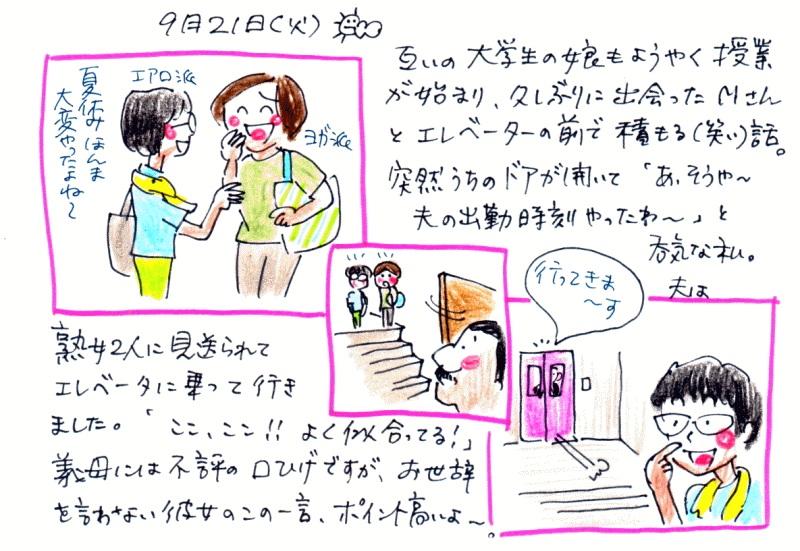 9月21日(火)
エアロ派
ヨガ派
夏休みほんま
大変やったよね〜
互いの大学生の娘もようやく授業
が始まり、久しぶりに出会ったMさん
とエレベーターの前で積もる(笑い)話。
突然うちのドアが開いて「あ、そうや〜
夫の出勤時刻やったわ〜」と
呑気な私。
夫は
行ってきま
〜す
熟女2人に見送られて
エレベータに乗って行き
ました。「ここ、ここ!! よく似合ってる!」
義母には不評の口ひげですが、お世辞
を言わない彼女のこの一言、ポイント高いよ〜。